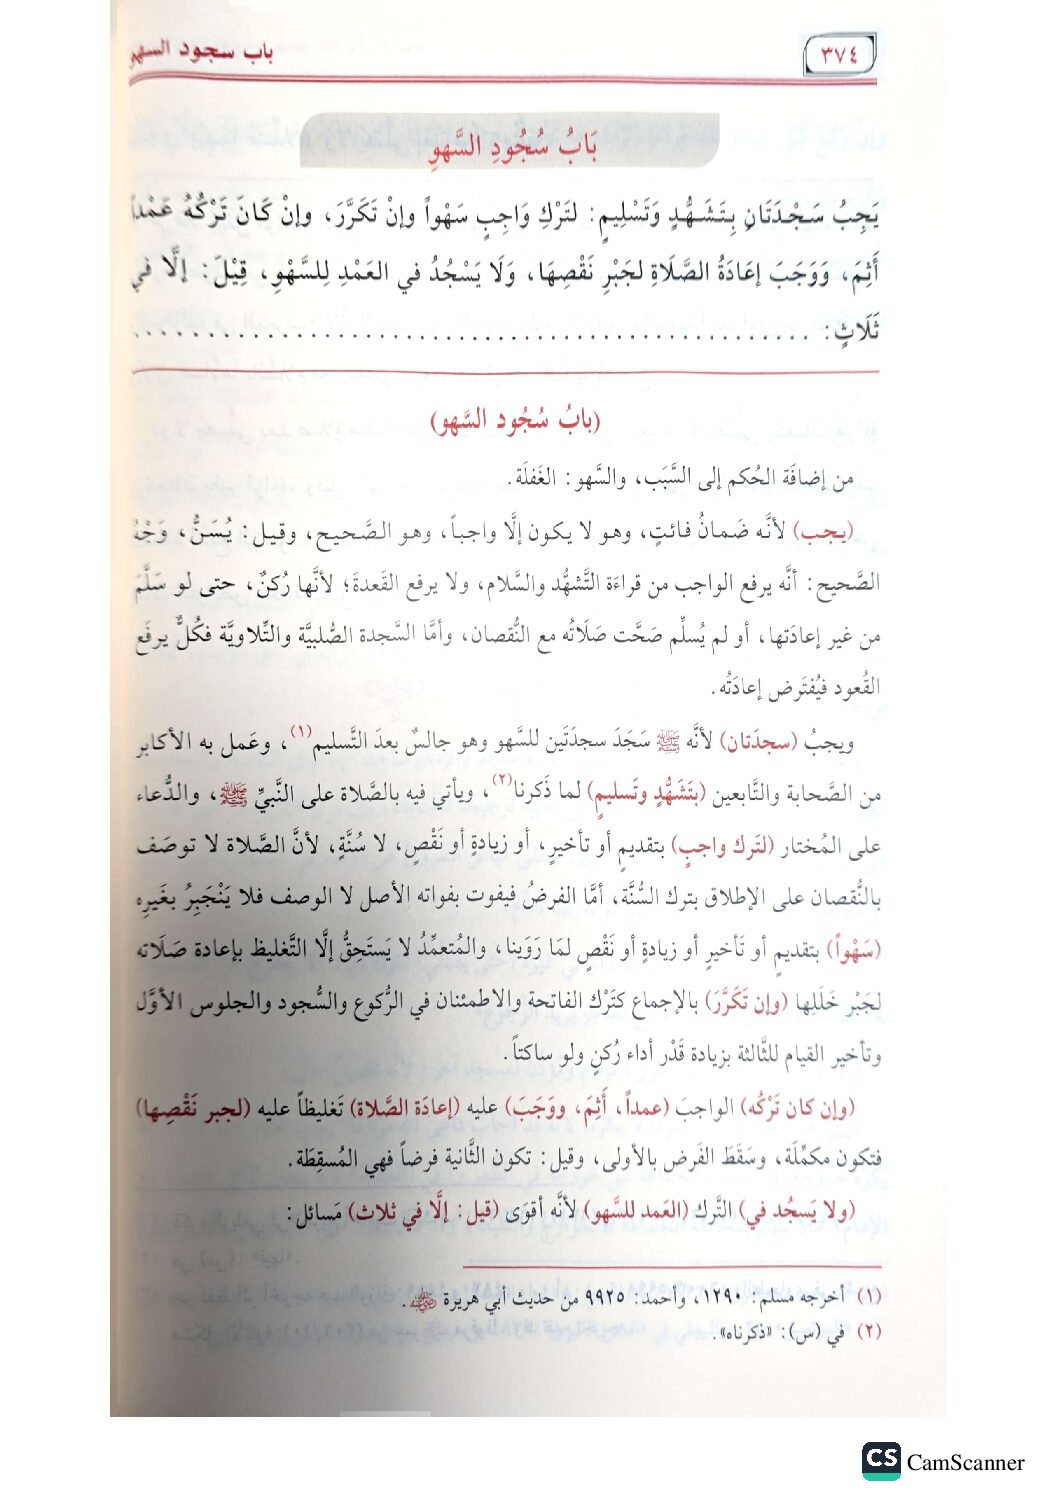 ٣٧٤
باب سجود السهو
بَابُ سُجُودِ السَّهوِ
يَجِبُ سَجْدَتَانِ بِتَشَهُّدٍ وَتَسْلِيمٍ: لتَرْكِ وَاجِبٍ سَهْواً وإنْ تَكَرَّرَ، وإنْ كَانَ تَرْكُهُ عَمْداً
أَثِمَ، وَوَجَبَ إعَادَةُ الصَّلَاةِ لجَبْرِ نَقْصِهَا، وَلَا يَسْجُدُ في العَمْدِ لِلسَّهْوِ، قِيْلَ: إلَّا في
ثَلَاثٍ: ..................................................
(بابُ سُجُود السَّهو)
من إضافَة الحُكم إلى السَّبَب، والسَّهو: الغَفلَة.
(يجب) لأنَّه ضَمانُ فائتٍ، وهو لا يكون إلَّا واجباً، وهو الصَّحيح، وقيل: يُسَنُّ، وَجْهُ
الصَّحيح: أنَّه يرفع الواجب من قراءَة التَّشهُّد والسَّلام، ولا يرفع القَعدةَ؛ لأنَّها رُكنٌ، حتى لو سَلَّمَ
من غير إعادَتها، أو لم يُسلِّم صَحَّت صَلَاتُه مع النُّقصان، وأمَّا السَّجدة الصُّلبيَّة والتِّلاويَّة فكُلٌّ يرفَع
القُعود فيُفتَرض إعادَتُه.
ويجبُ (سجدَتان) لأنَّه ﷺ سَجَدَ سجدَتَين للسَّهو وهو جالسٌ بعدَ التَّسليم(١)، وعَمل به الأكابر
من الصَّحابة والتَّابعين (بتَشَهُّدٍ وتَسليمٍ) لما ذَكرنا(٢)، ويأتي فيه بالصَّلاة على النَّبيِّ ﷺ، والدُّعاء
على المُختار (لتَرك واجبٍ) بتقديمٍ أو تأخيرٍ، أو زيادةٍ أو نَقْصٍ، لا سُنَّةٍ، لأنَّ الصَّلاة لا توصَف
بالنُّقصان على الإطلاق بترك السُّنَّة، أمَّا الفرضُ فيفوت بفواته الأصل لا الوصف فلا يَنْجَبِرُ بغَيرِه
(سَهْواً) بتقديمٍ أو تَأخيرٍ أو زيادةٍ أو نَقْصٍ لمَا رَوَينا، والمُتعمِّدُ لا يَستَحِقُّ إلَّا التَّغليظ بإعادة صَلَاته
لجَبْر خَلَلِها (وإن تَكَرَّرَ) بالإجماع كتَرْك الفاتحة والاطمئنان في الرُّكوع والسُّجود والجلوس الأوَّل
وتأخير القيام للثَّالثة بزيادة قَدْر أداء رُكنٍ ولو ساكتاً.
(وإن كان تَرْكُه) الواجبَ (عمداً، أثِمَ، ووَجَبَ) عليه (إعادَة الصَّلاة) تَغليظاً عليه (لجبر نَقْصِها)
فتكون مكمِّلَة، وسَقَطَ الفَرض بالأولى، وقيل: تكون الثَّانية فرضاً فهي المُسقِطَة.
(ولا يَسجُد في) التَّرك (العَمد للسَّهو) لأنَّه أقوَى (قيل: إلَّا في ثلاث) مَسائل:
(١) أخرجه مسلم: ١٢٩٠، وأحمد: ٩٩٢٥ من حديث أبي هريرة ﷺ.
(٢) في (س): «ذكرناه».
CS CamScanner